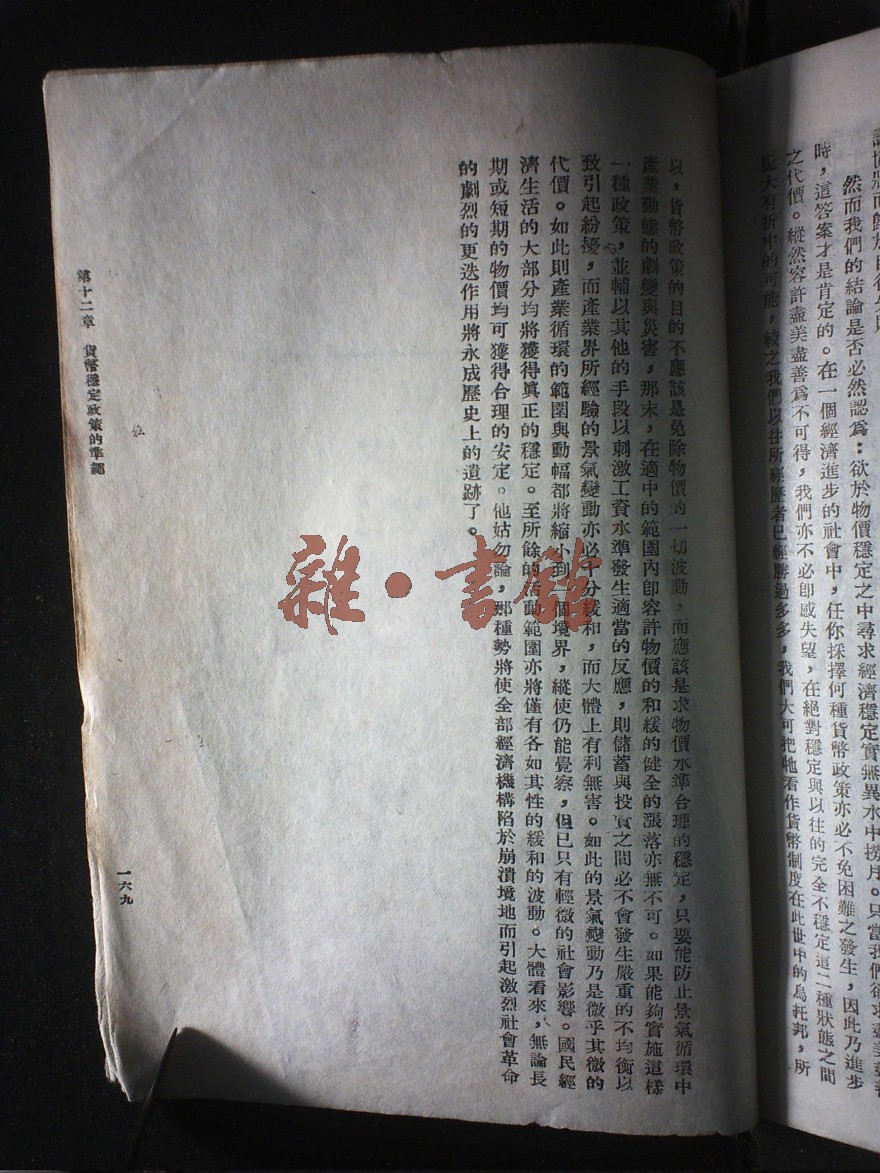 然而我們的結論是否必然認爲：欲於物價穩定之中尋求經濟穩定實無異水中撈月。只當我們欲求盡美盡善
時，這答案才是肯定的。在一個經濟進步的社會中，任你採擇何種貨幣政策亦必不免困難之發生，因此乃進步
之代價。縱然容許盡美盡善爲不可得，我們亦不必卽感失望，在絕對穩定與以往的完全不穩定這二種狀態之間
大有折中的可能，較之我們以往所經歷者已經勝過多多，我們大可把牠看作貨幣制度在此世中的烏托邦，所
以，貨幣政策的目的不應該是免除物價的一切波動，而應該是求物價水準合理的穩定，只要能防止景氣循環中
產業動態的劇變與災害，那末，在適中的範圍內卽容許物價的和緩的健全的漲落亦無不可。如果能夠實施這樣
一種政策，並輔以其他的手段以刺激工資水準發生適當的反應，則儲蓄與投資之間必不會發生嚴重的不均衡以
致引起紛擾，而產業界所經驗的景氣變動亦必十分緩和，而大體上有利無害。如此的景氣變動乃是微乎其微的
代價。如此則產業循環的範圍與動幅都將縮小到一個境界，縱使仍能覺察，但已只有輕微的社會影響。國民經
濟生活的大部分均將獲得眞正的穩定。至所餘的動範圍亦將僅有各如其性的緩和的波動。大體看來，無論長
期或短期的物價均可獲得合理的安定。他姑勿論，那種勢將使全部經濟機構陷於崩潰境地而引起激烈社會革命
的劇烈的更迭作用將永成歷史上的遺跡了。
第十二章　貨幣穩定政策的準認
一六九
雜·書館